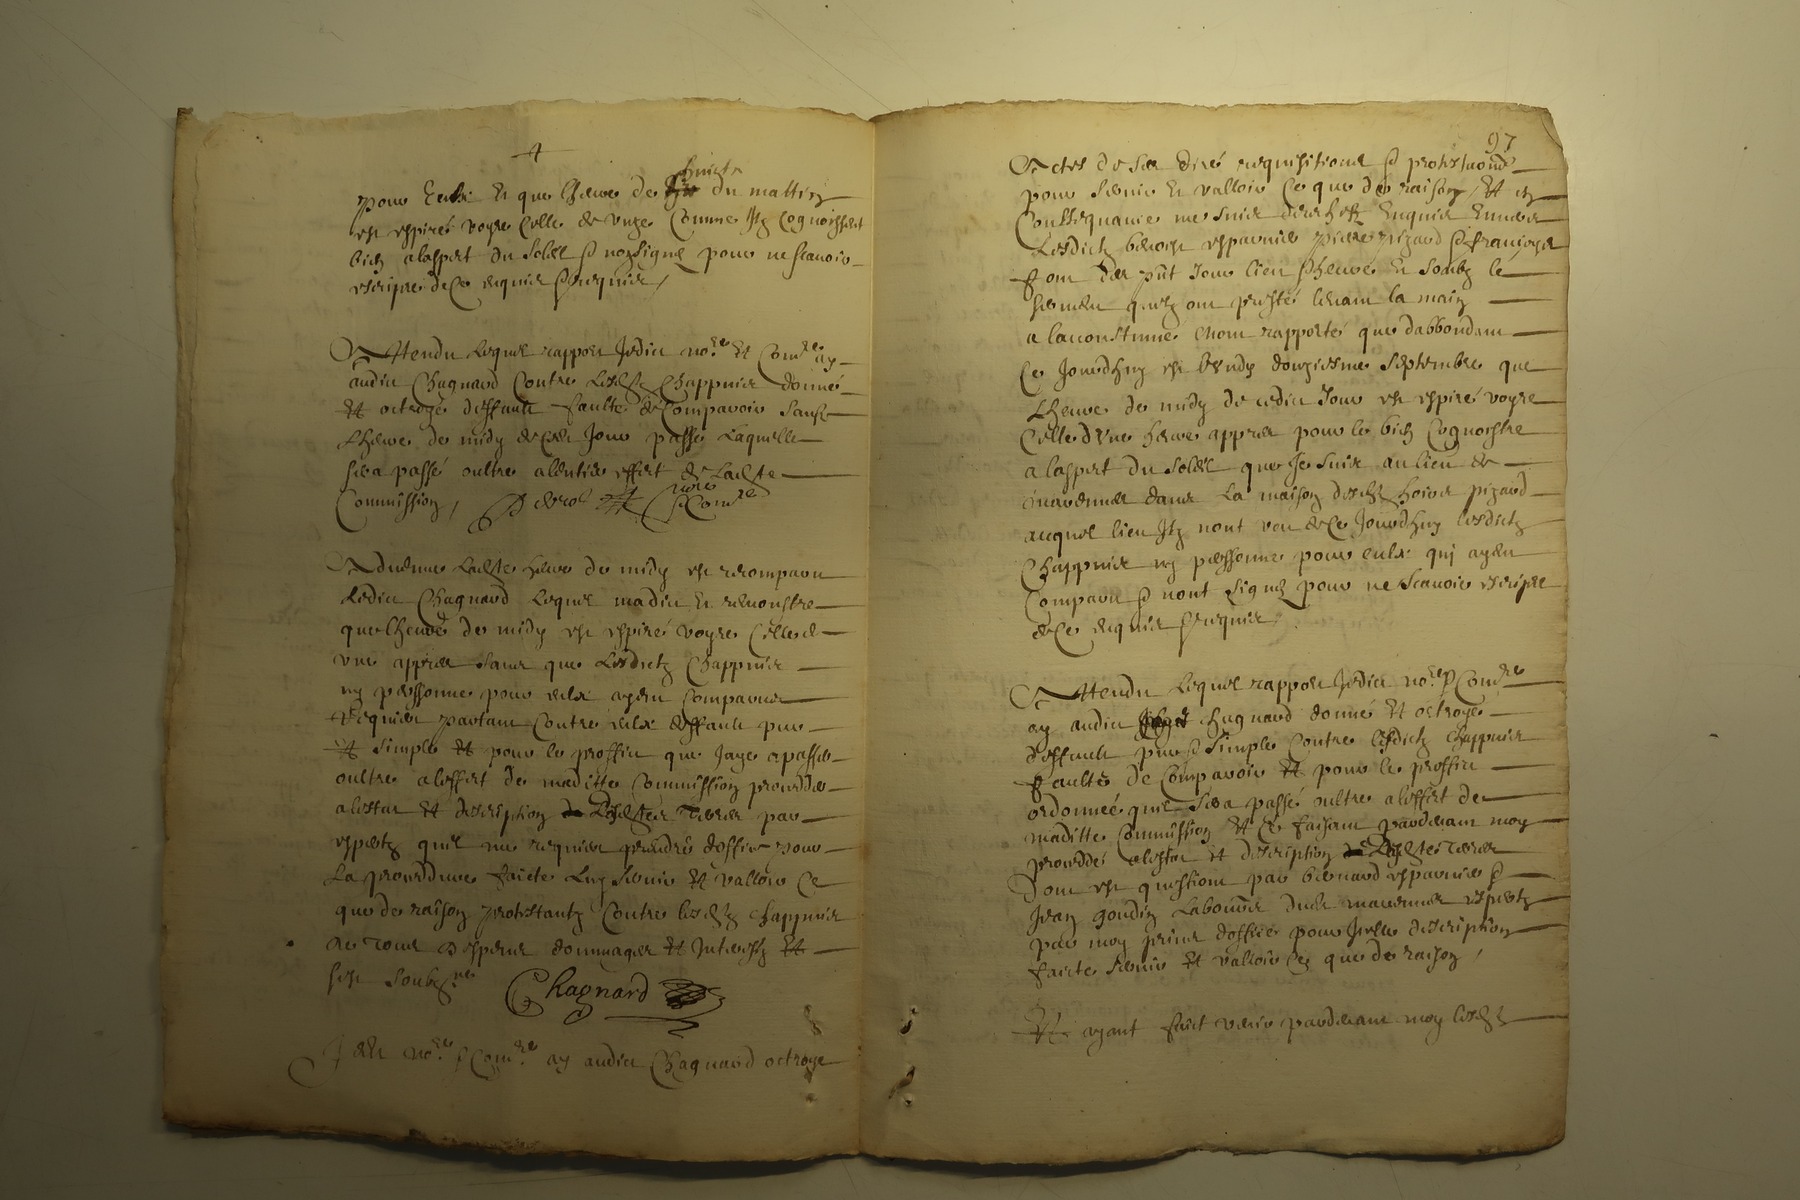 4
huicts
pour eulx et que lheure de du mattin
est expiré voyre celle de unze comme Ilz cognoissent
bien a laspect du soleil et non signé pour ne scavoir
escripre de ce enquis et requis /
Attendu lequel rapport Jedict nore et Comre ay
audict Chagnard contre lesdtz Chappuis donné
et octroyé deffault faulte de comparoir sauf
Lheure de midy de cedt Jour passé laquelle
sera passé oultre a lentier effect de ladte
Commission /
nore et Comre
Advenue ladte heure de midy est recomparu
ledict Chagnard lequel madict et remonstre
que lheure de midy est expiré voyre celle d
une appres sans que lesdictz Chappuis
ny personne pour eulx ayent comparus
Requier partant contre eulx deffault pur
et simple et pour le proffict que Jaye a passer
oultre a leffect de maditte Commission procedder
a lestat et description desdtes Terres par
expertz quil me requier prendre doffice pour
la proceddure faicte luy servir et valloir ce
que de raison protestantz contre lesdtz Chappuis
de Tous despens dommages et Interestz et
sest soubzne Chagnard
Jedt nore et Comre ay audict Chagnard octroye
97
Actes de ses dire requisitions et protestaons
pour servir et valloir ce que de raison / Et en
consequance me suis derechefz enquis envers
Lesdictz benoist esparvier pierre pizard et françoys
font des pnt Jour lieu et heure et soubz le
serment quilz ont presté levant la main
a laccoustumé mont rapporté que dabbondant
ce Jourdhuy est vendy douziesme septembre que
Lheure de midy de cedict Jour est expiré voyre
celle dune heure appres pour le bien cognoistre
a laspect du soleil que Je suis au lieu de
marennes dans la maison desdtz hoirs pizard
auquel lieu Ilz nont veu de ce Jourdhuy lesdictz
Chappuis ny personne pour eulx qui ayent
comparu et nont signé pour ne scavoir escripre
de ce enquis et requis /
Attendu lequel rapport Jedict nore et Comre
ay audict Chagnard donné et octroyé
deffault pur et simple contre lesdictz Chappuis
faulte de comparoir et pour le proffict
ordonné quil sera passé oultre a leffect de
maditte Commission et ce faisant pardevant moy
proceddé a lestat et description desdtes Terres
dont est question par bernard esparvier et
Jean goudin laboureur dudt marennes expertz
par moy prins doffice pour Icelle description
faicte servir et valloir ce que de raison /
Et ayant faict venir pardevant moy lesdtz